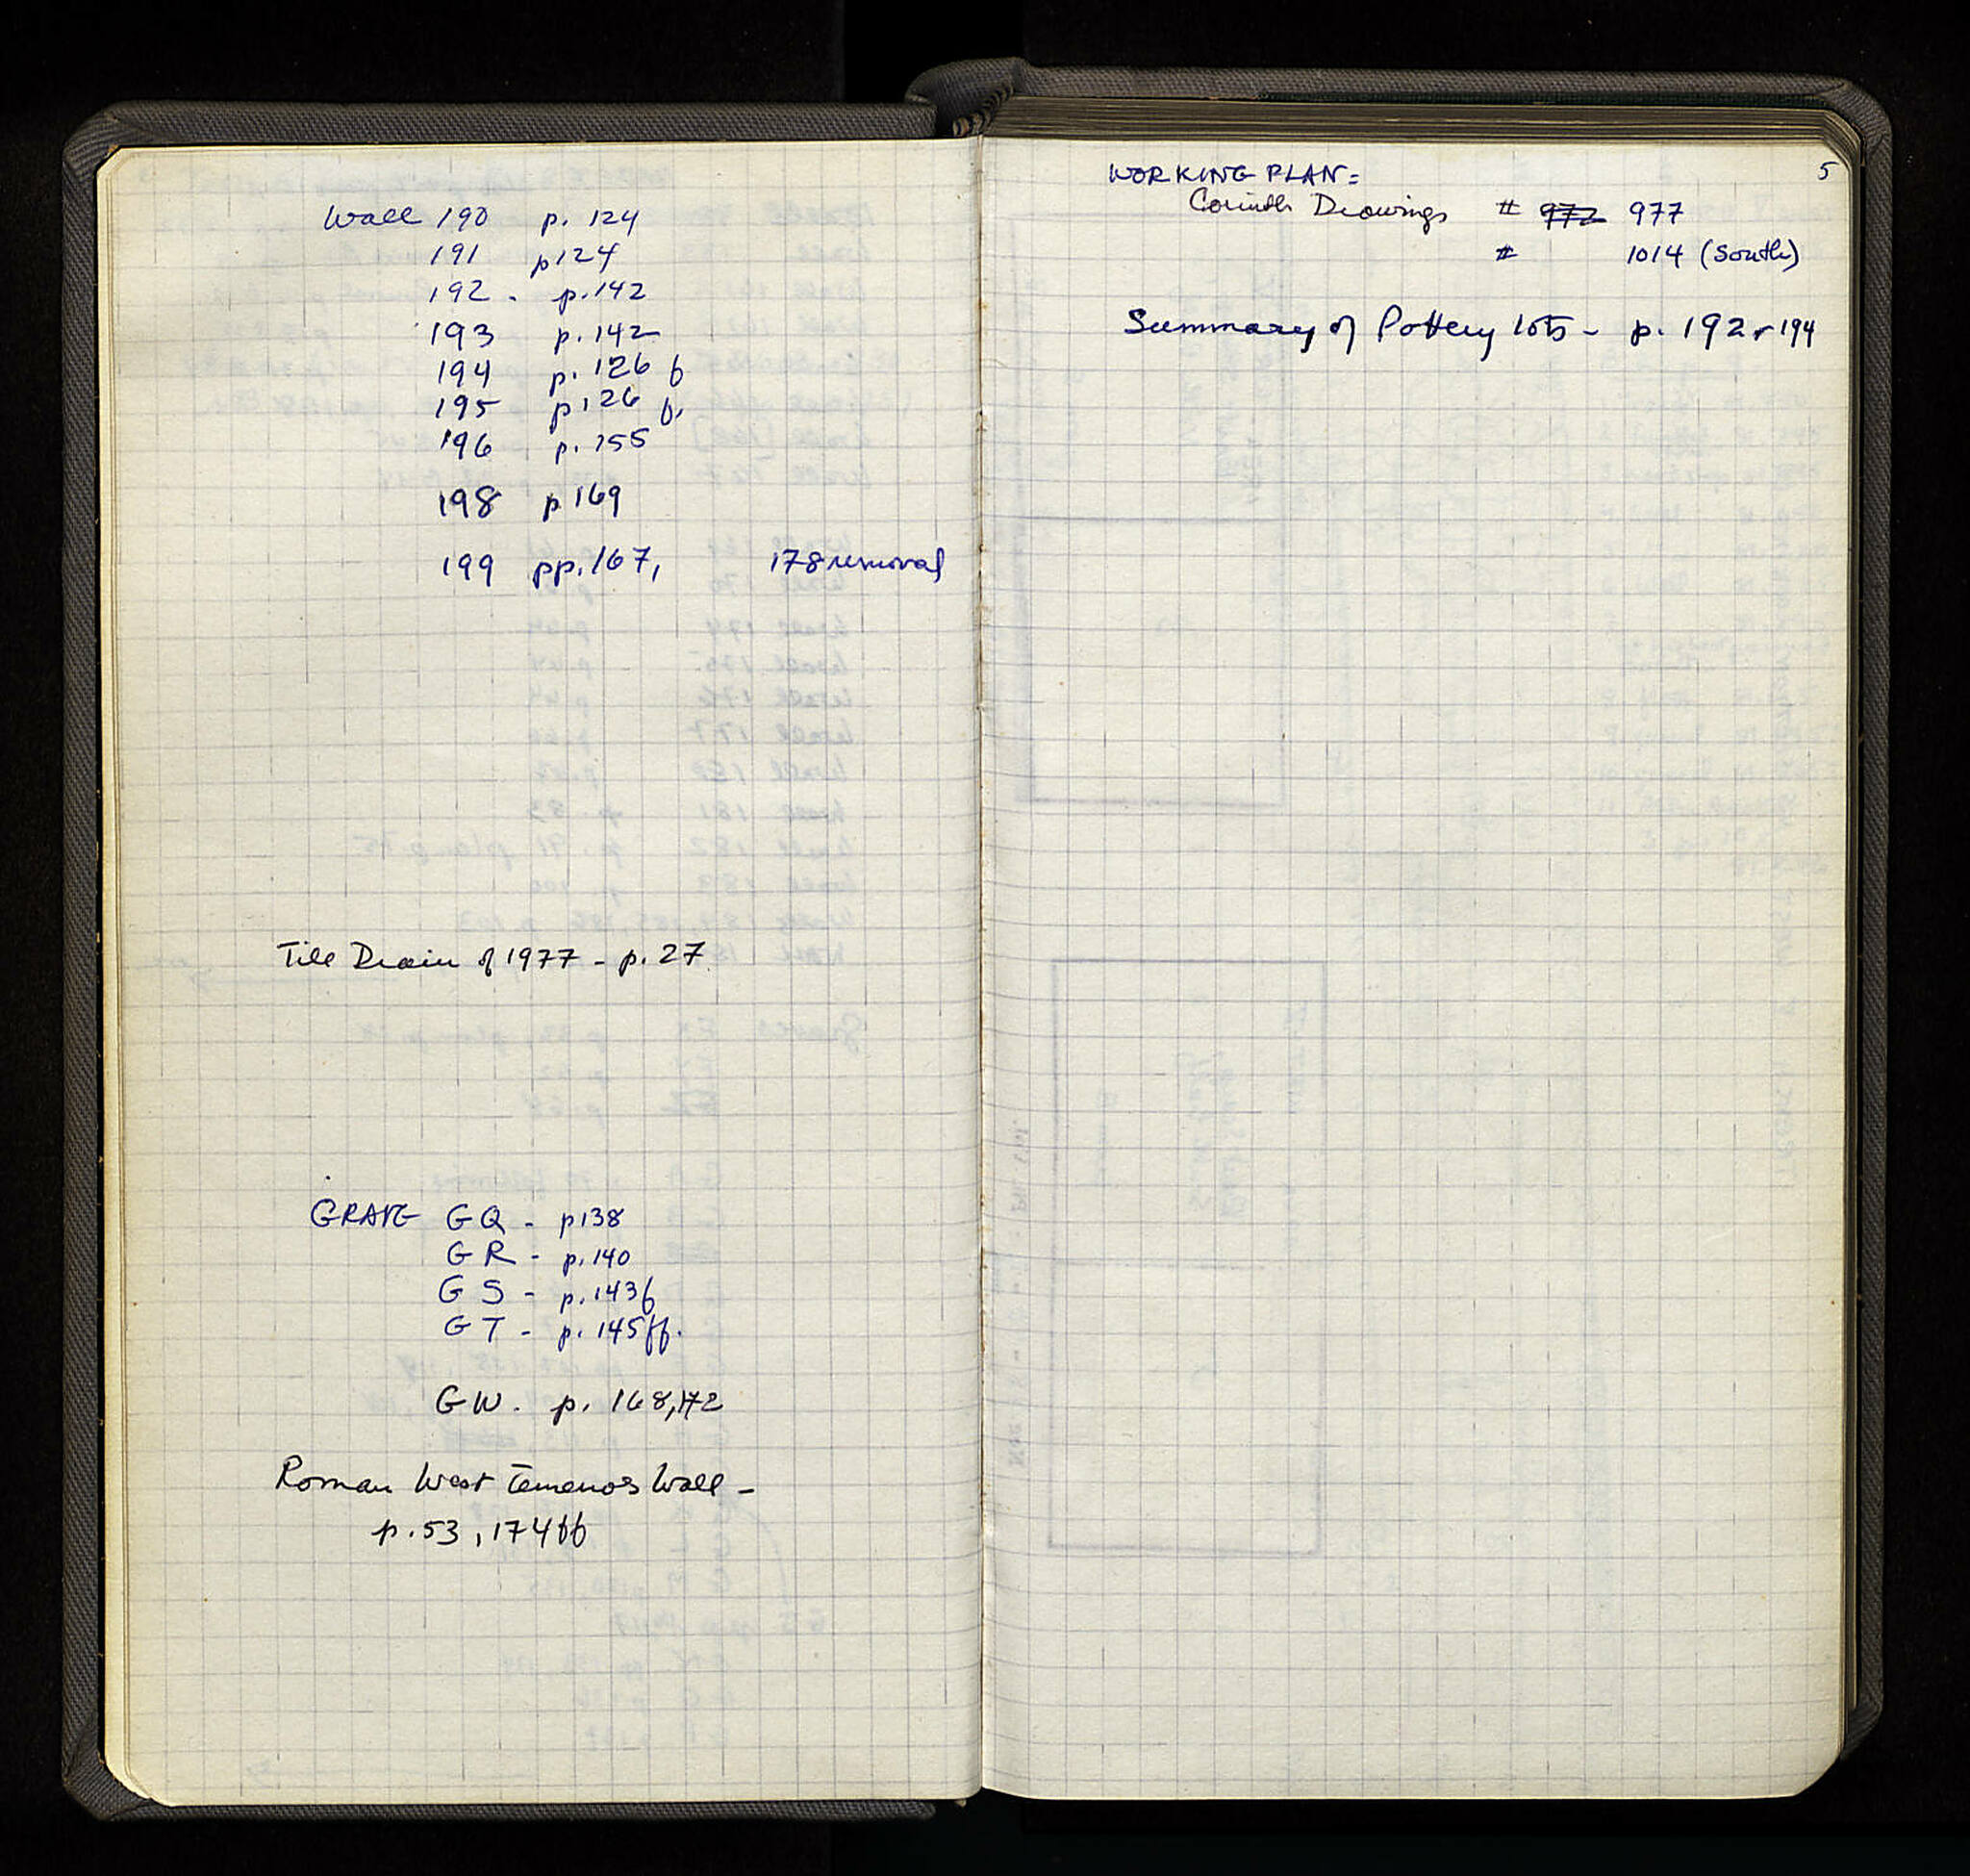 Wall 190 p. 124
191 p124
192 - p. 142
193 p. 142
194 p. 126 f
195 p126 f.
196 p. 155
198 p 169
199 pp. 167, 178 removal
Tile Drain of 1977 - p. 27
GRAVE GQ - p138
GR - p. 140
GS - p. 143f
GT - p. 145ff.
GW. p. 168, 172
Roman West Temenos Wall -
p. 53, 174ff
5
WORKING PLAN =
Corinth Drawings # 972 977
# 1014 (South)
Summary of Pottery lots - p. 192 + 194